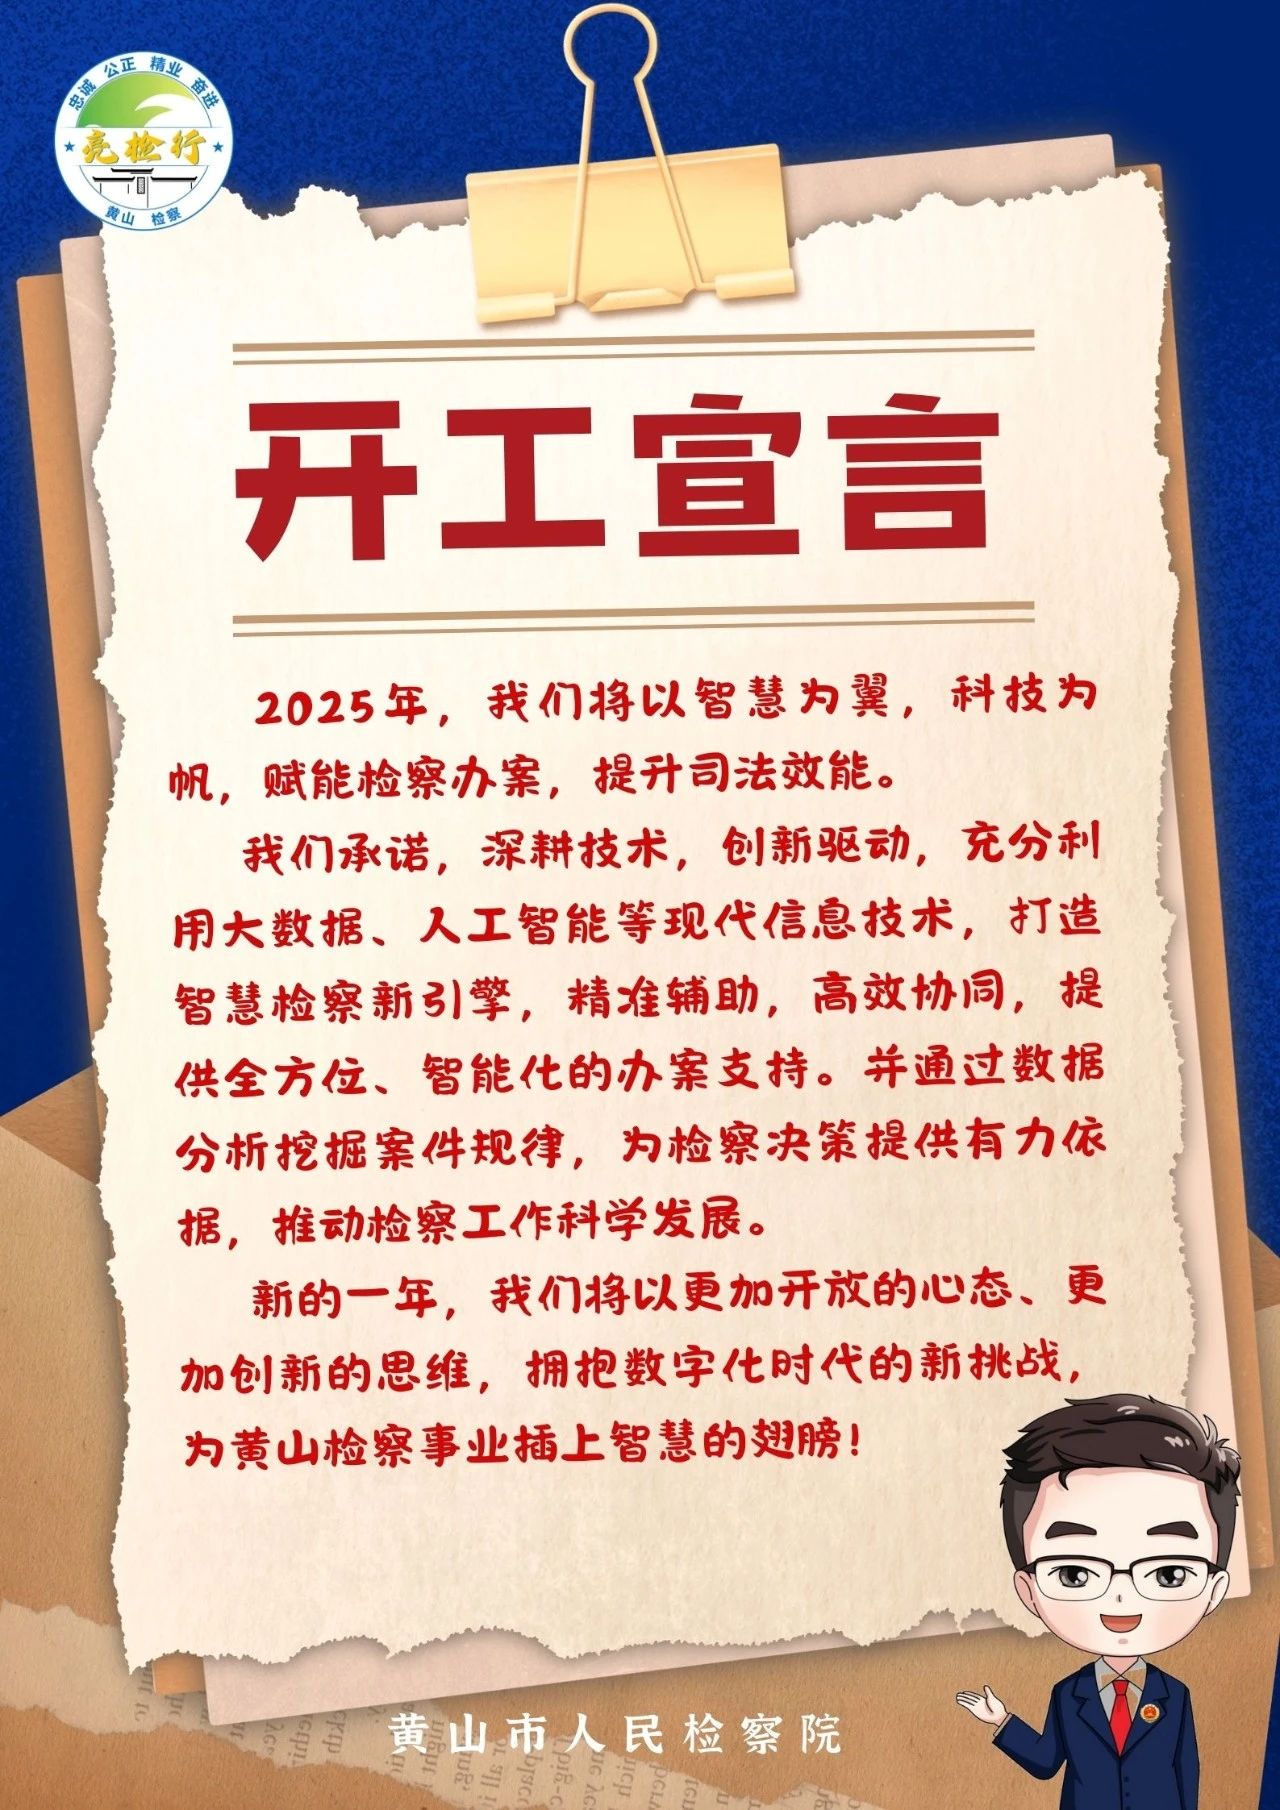 忠诚 公正 精业 奋进
亮检行
黄山 检察
开工宣言
2025年，我们将以智慧为翼，科技为
帆，赋能检察办案，提升司法效能。
我们承诺，深耕技术，创新驱动，充分利
用大数据、人工智能等现代信息技术，打造
智慧检察新引擎，精准辅助，高效协同，提
供全方位、智能化的办案支持。并通过数据
分析挖掘案件规律，为检察决策提供有力依
据，推动检察工作科学发展。
新的一年，我们将以更加开放的心态、更
加创新的思维，拥抱数字化时代的新挑战，
为黄山检察事业插上智慧的翅膀！
黄山市人民检察院